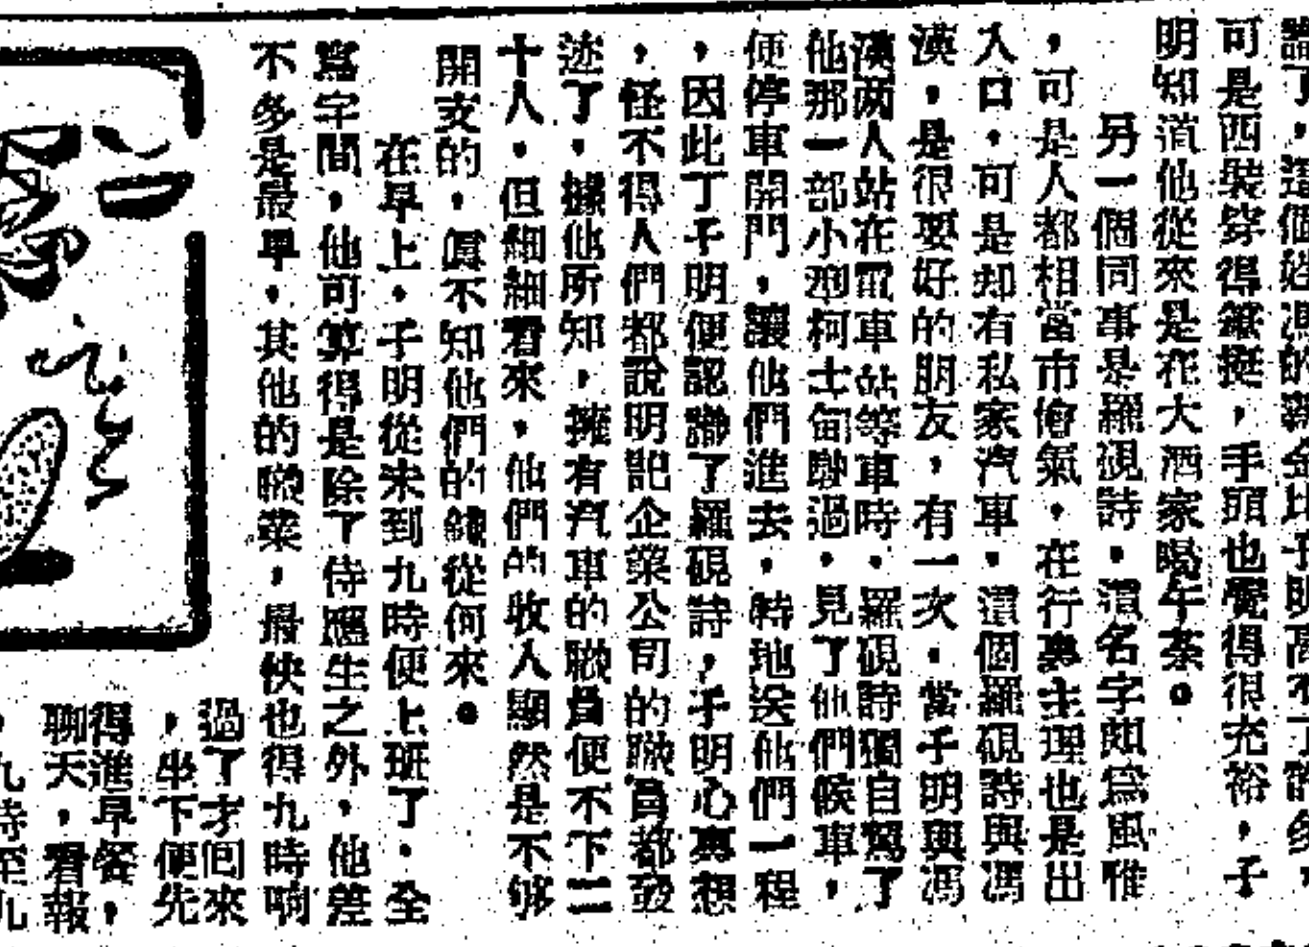 可是西裝穿得筆挺，手頭也覺得很充裕，子
明知道他從來是在大酒家喝午茶。
另一個同事是羅硯詩，這名字頗爲風雅
，可是人都相當市儈氣，在行車主理也是出
入口，可是却有私家汽車，這個羅硯詩與馮
漢，是很要好的朋友，有一次，當子明與馮
漢兩人站在電車站等車時，羅硯詩獨自駕了
他那一部小型柯士甸駛過，見了他們候車，
便停車開門，讓他們進去，特地送他們一程
，因此丁子明便認識了羅硯詩，子明心裏想
，怪不得人們都說明記企業公司的職員都發
達了，據他所知，擁有汽車的職員便不下二
十人，但細細看來，他們的收入顯然是不够
開支的，眞不知他們的錢從何來。
在早上，子明從未到九時便上班了，全
寫字間，他可算得是除了侍應生之外，他差
不多是最早，其他的職業，最快也得九時
過了才囘來
，坐下便先
得進早餐，
聊天，看報
，九時至九